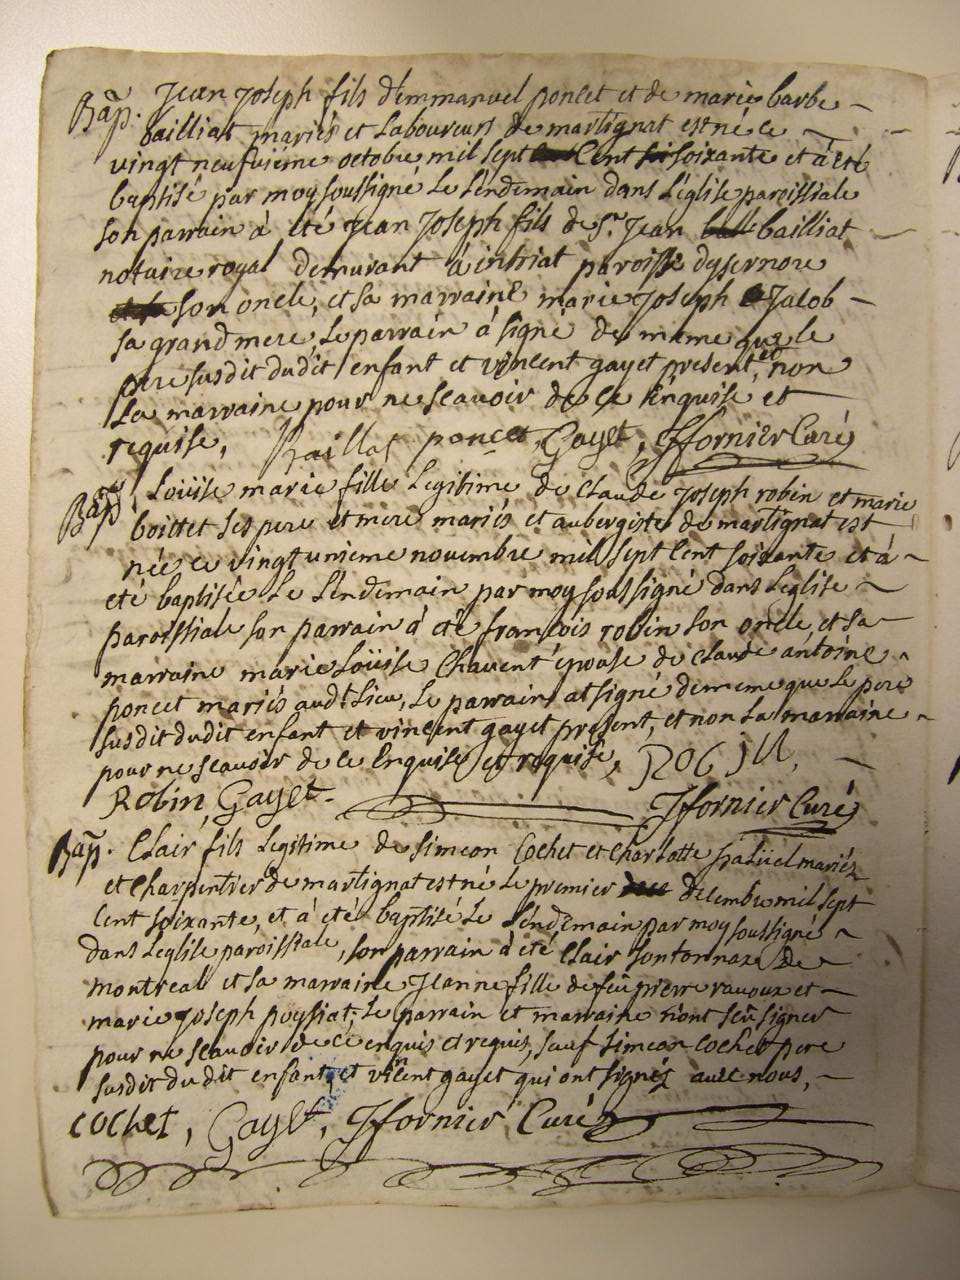 Bap. Jean Joseph fils d'emmanuel poncet et de marie barbe
bailliat mariés et Laboureurs de martignat est né ce
vingt neufvième octobre mil sept Cent soixante et à été
baptisé par moy soussigné Le Lendemain dans L'église paroissiale
son parrain à été Jean Joseph fils de Sr. Jean bailliat
notaire royal demurant à intriat paroisse dysernore
son oncle, et sa marraine marie Joseph Jacob
sa grand mere, Le parrain à signé de même que le
pere susdit dudit enfant et vincent gayet present, et non
La marraine pour ne scavoir de ce Enquise et
requise, Baillat poncet, Gayet, Jffornier Curé
Bap. Loüise marie fille Legitime de Claude Joseph robin et marie
boittet ses pere et mere mariés et aubergiste de martignat est
née ce vingt unieme novembre mil sept Cent soixante et à
eté baptisée Le Lendemain par moy soussigné dans L'eglise
paroissiale son parrain à été françois robin son oncle, et sa
marraine marie Loüise Chavent épouse de Claude antoine
poncet mariés aud.t Lieu, Le parrain at signé de meme que Le pere
susdit dudit enfant et vincent gayet present, et non La marraine
pour ne scavoir de ce Enquise et requise, ROBIN,
Robin, Gayet. Jffornier Curé
Bap. Clair fils Legitime de simeon Cochet et Charlotte paluel mariéz
et Charpentier de martignat est né Le premier decembre mil sept
Cent soixante, et à été baptisé Le Lendemain par moy soussigné
dans L'eglise paroissiale, son parrain à été Clair sontonnax de
montreal et sa marraine Jeanne fille de feu pierre ravoux et
marie Joseph puyssiat; Le parrain et marraine n'ont sçeu signer
pour ne scavoir de ce enquis et requis, sauf simeon Cochet pere
susdit du dit enfant, et vincent gayet qui ont signéz avec nous,
COCHET, Gayet, Jffornier Curé